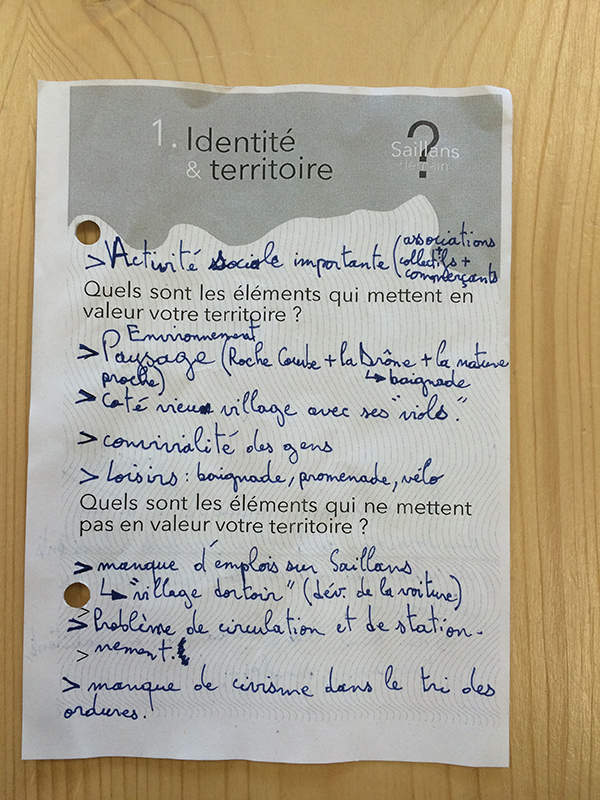 1. Identité
& territoire
?
Saillans
demain
> Activité sociale importante (associations
+
collectifs +
commerçants
Quels sont les éléments qui mettent en
valeur votre territoire ?
Environnement
> Paysage (Roche Courbe + la Drône + la nature
proche)
↳ baignade
> Coté vieux village avec ses "viols".
> convivialité des gens
> Loisirs : baignade, promenade, vélo
Quels sont les éléments qui ne mettent
pas en valeur votre territoire ?
> manque d'emplois sur Saillans
↳ "village dortoir" (dév. de la voiture)
>
> Problème de circulation et de station-
> nement.
> manque de civisme dans le tri des
ordures.